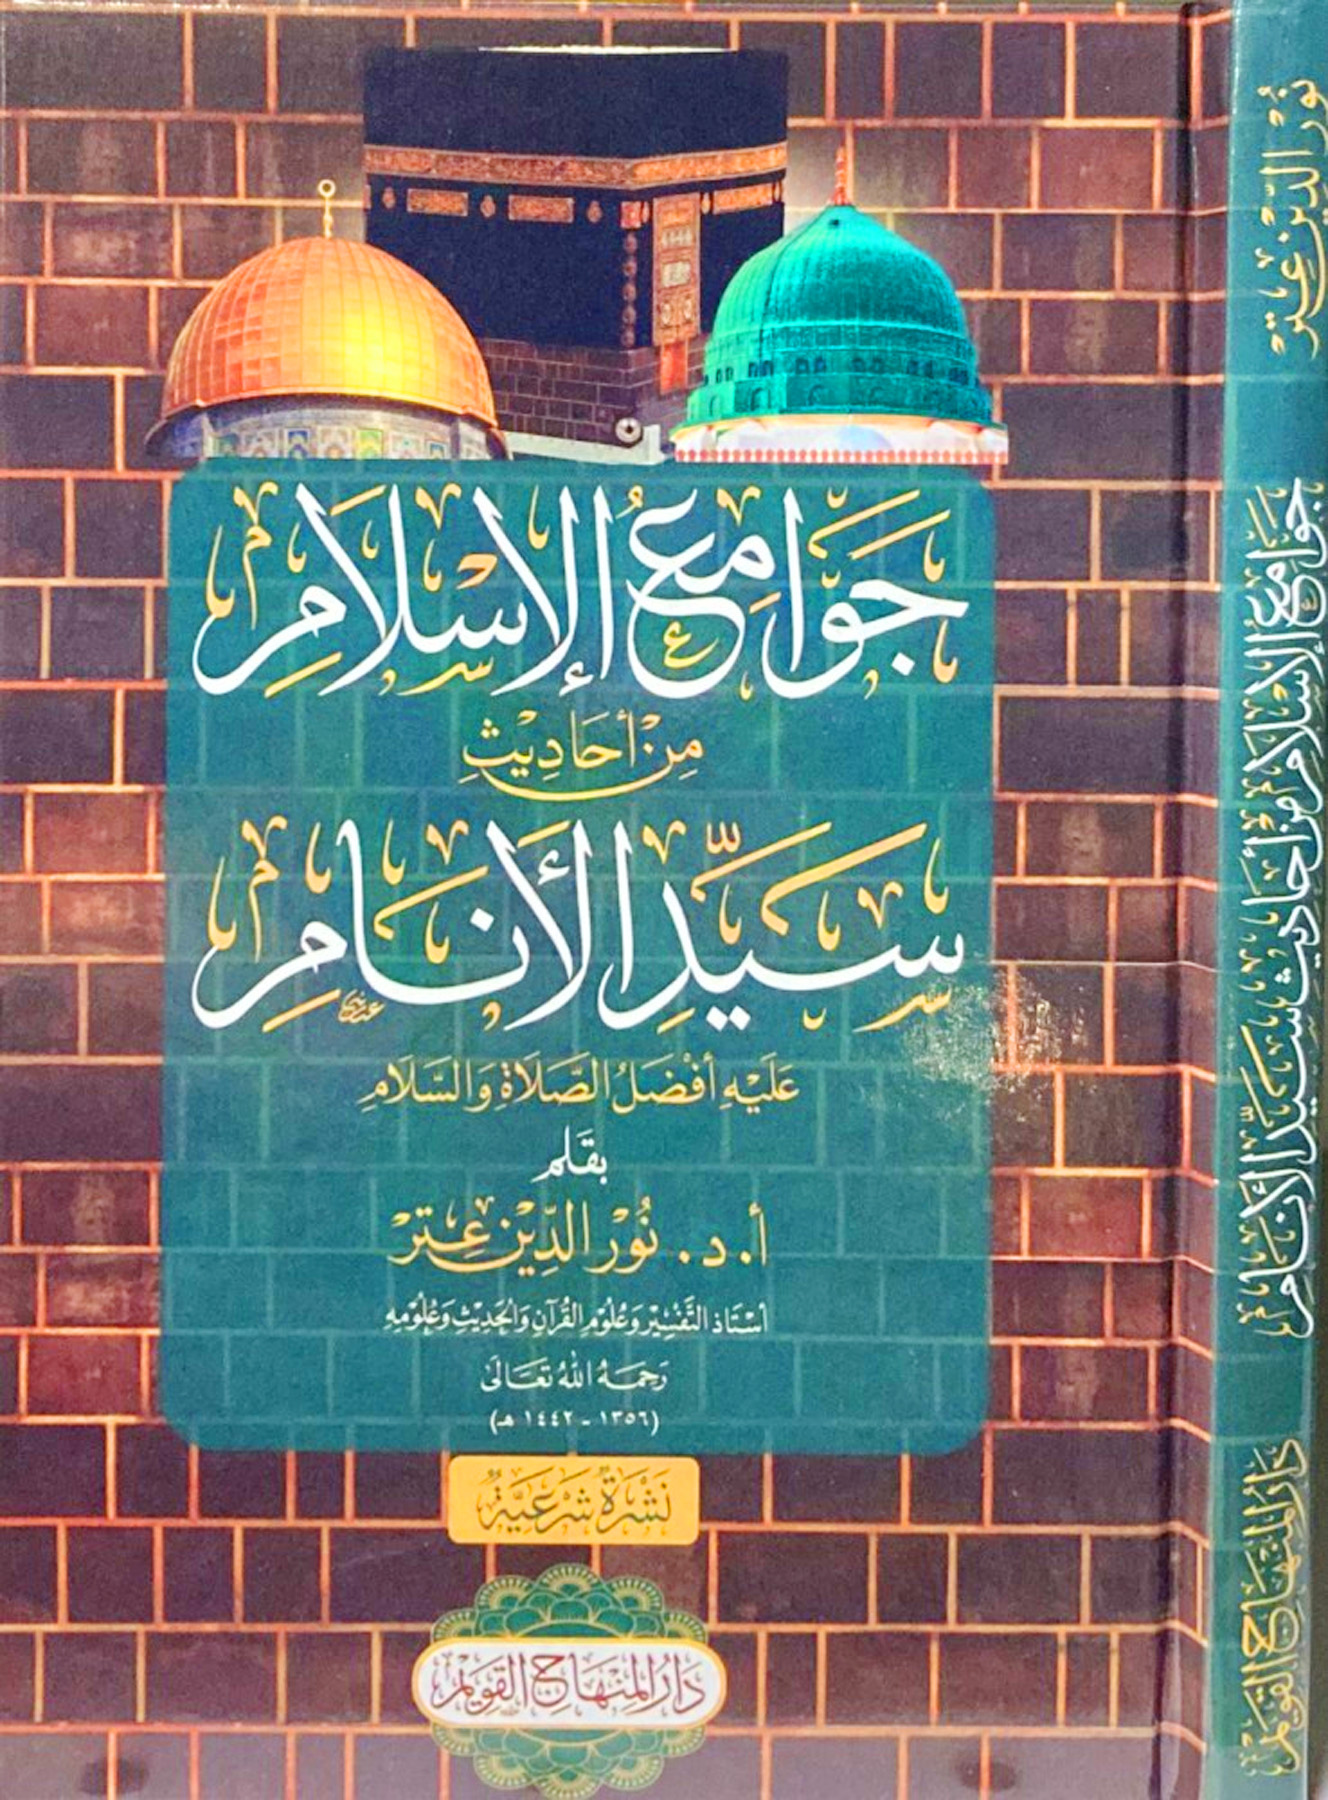 جَوَامِعُ الإِسْلَامِ
مِنْ أَحَادِيْثِ
سَيِّدِ الأَنَامِ
عَلَيْهِ أَفْضَلُ الصَّلَاةِ وَالسَّلَامِ
بقلم
أ. د. نُوْرُ الدِّيْن عِتِرْ
أستاذ التَّفْسِيْرِ وَعُلُوْمِ القُرْآنِ وَالحَدِيْثِ وَعُلُوْمِهِ
رَحِمَهُ اللهُ تَعَالَى
(١٣٥٦ - ١٤٤٢ هـ)
نَشْرَةٌ شَرْعِيَّةٌ
دَارُ المِنْهَاجِ القَوِيْمِ
نُوْرُ الدِّيْن عِتِرْ
جَوَامِعُ الإِسْلَامِ مِنْ أَحَادِيْثِ سَيِّدِ الأَنَامِ
دَارُ المِنْهَاجِ القَوِيْمِ